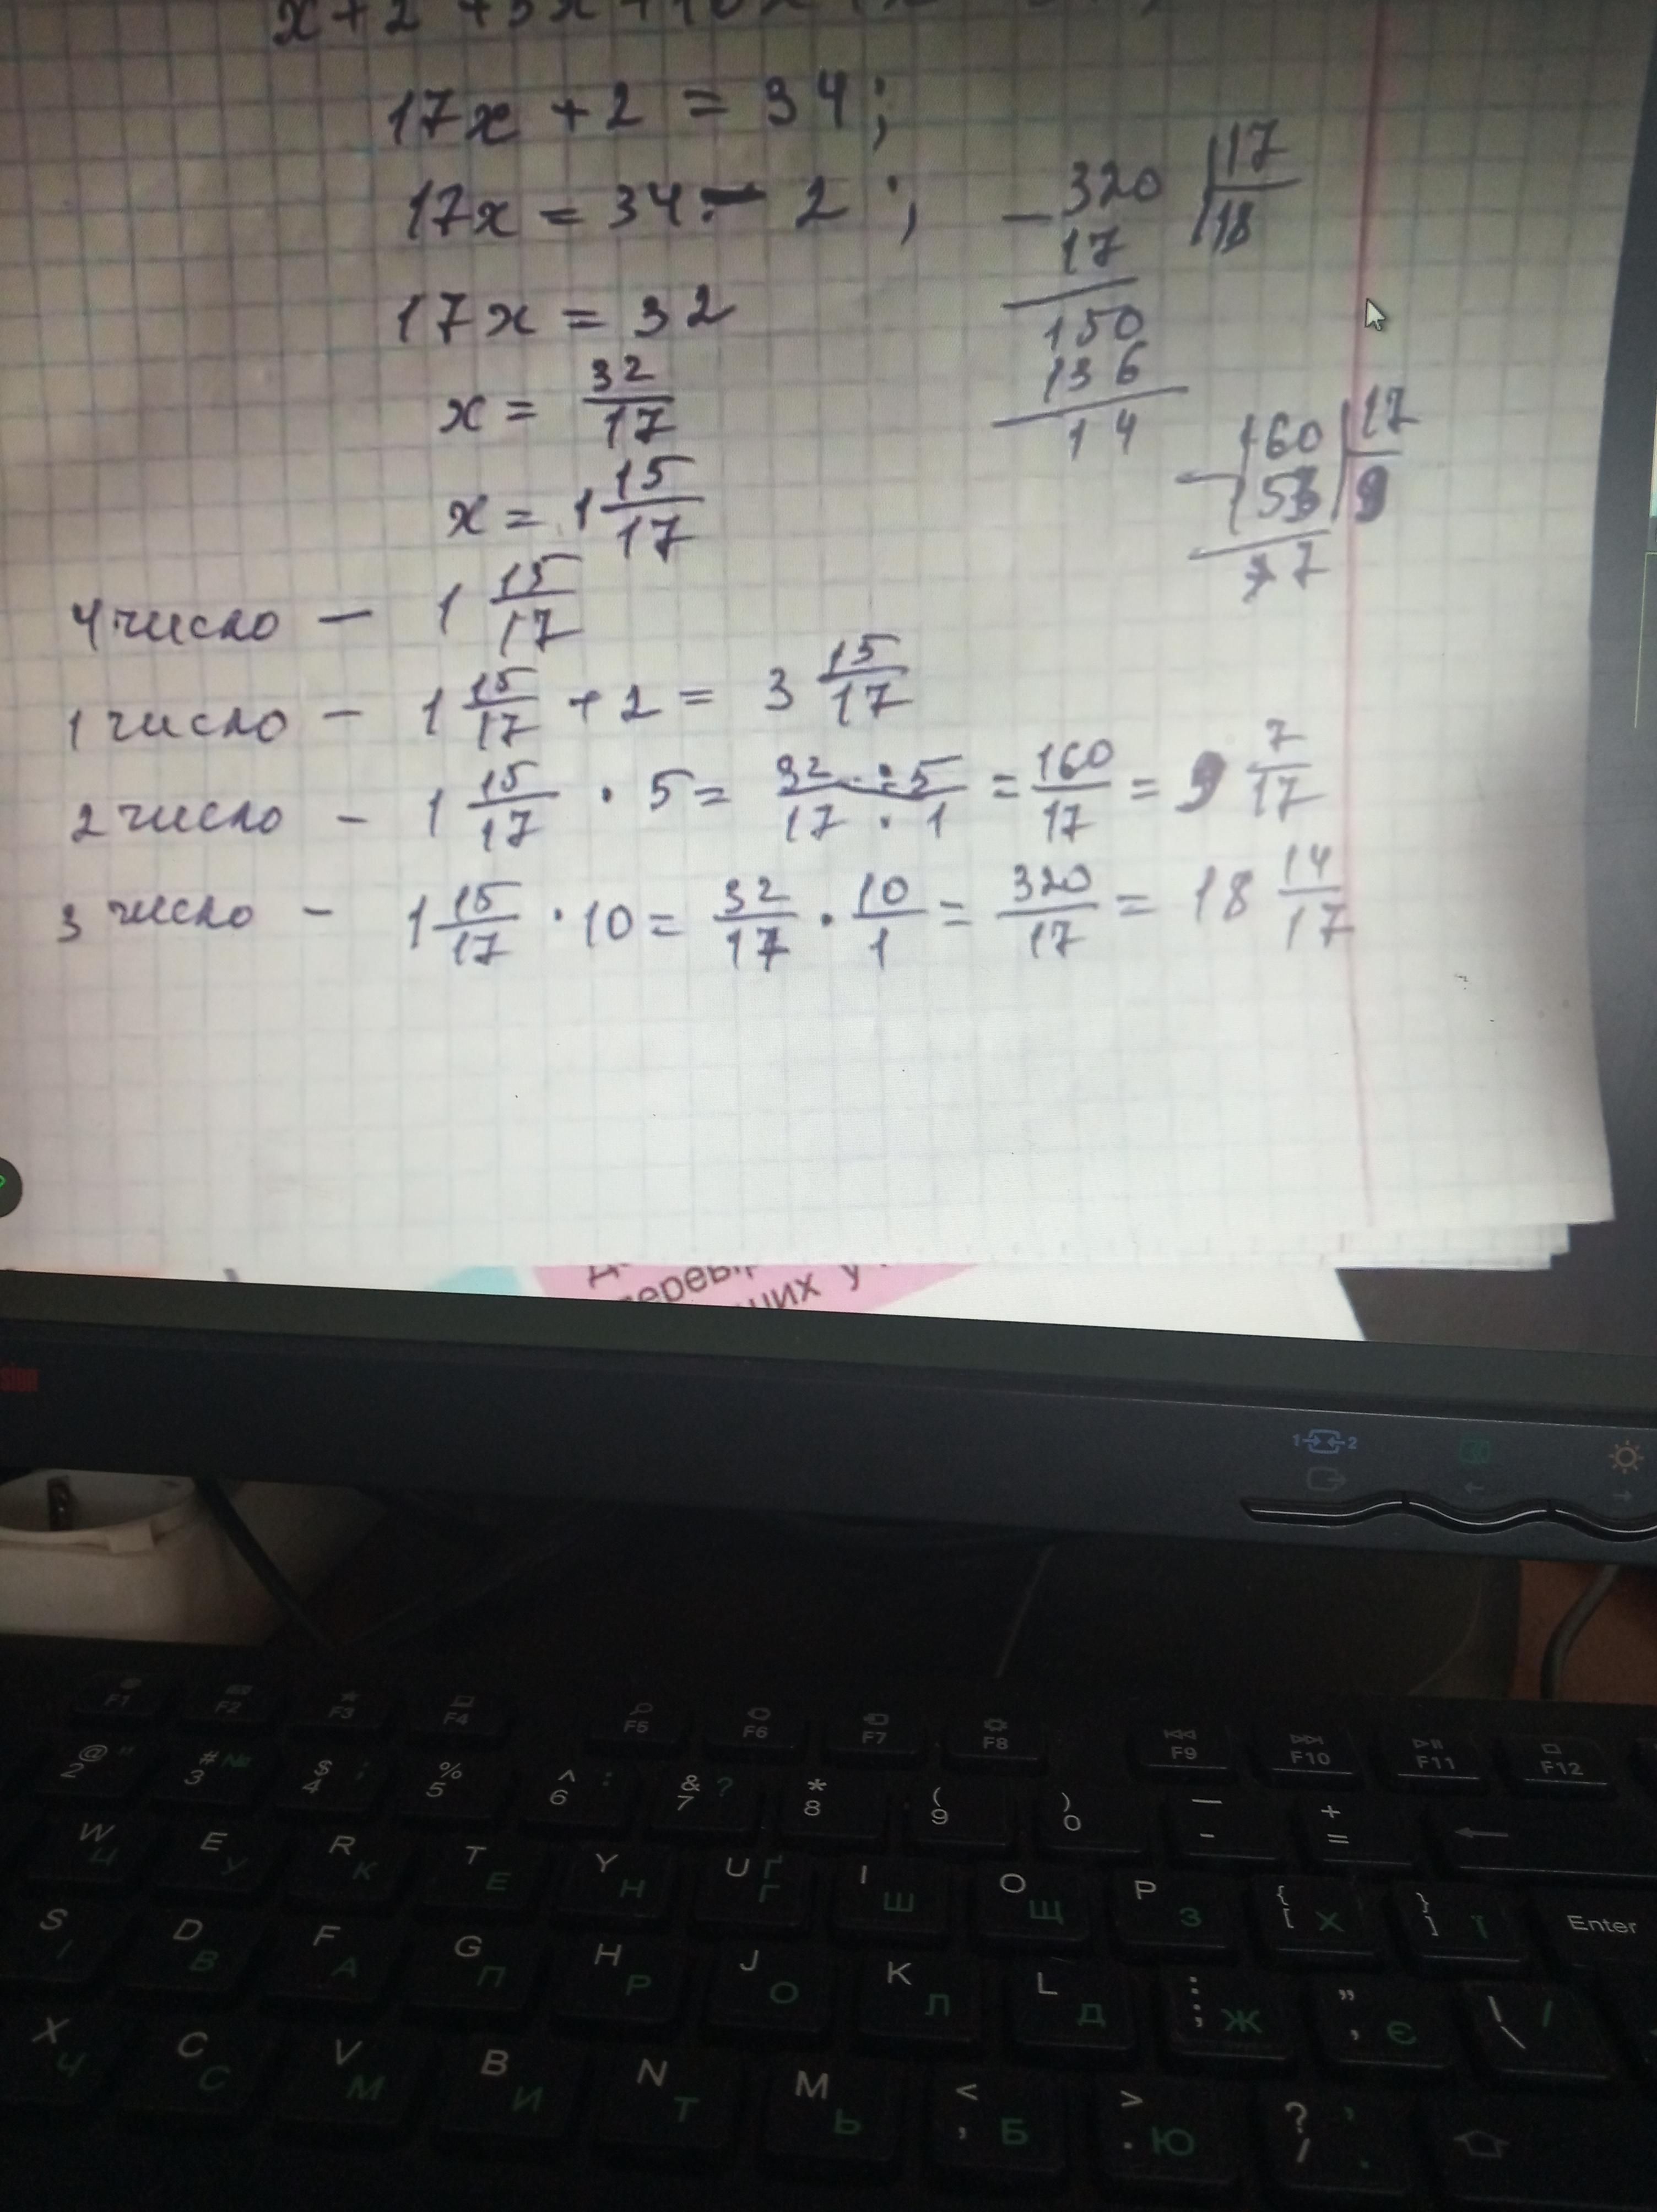 17x + 2 = 34;
17x = 34 - 2;
17x = 32
x = 32/17
x = 1 15/17
320 | 17
17 | 18
150
136
14
160 | 17
153 | 9
7
4 число – 1 15/17
1 число – 1 15/17 + 2 = 3 15/17
2 число – 1 15/17 · 5 = 32/17 · 5/1 = 160/17 = 9 7/17
3 число – 1 15/17 · 10 = 32/17 · 10/1 = 320/17 = 18 14/17
1 2
F1 F2 F3 F4 F5 F6 F7 F8 F9 F10 F11 F12
@ " 2 # № 3 $ ; 4 % 5 ^ : 6 & ? 7 * 8 ( 9 ) 0 — - + =
W Ц E У R К T Е Y Н U Ґ Г I Ш O Щ P З { [ Х } ] Ї Enter
S І D В F А G П H Р J О K Л L Д : ; Ж " ' Є | \ /
X Ч C С V М B И N Т M Ь < , Б > . Ю ? / , .